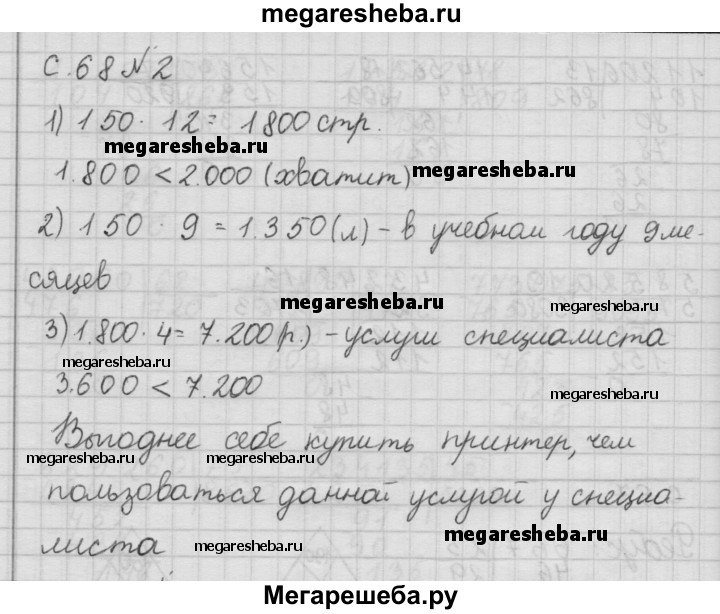 megaresheba.ru
С.68 №2
1) 150 · 12 = 1800 стр.
megaresheba.ru
1.800 < 2.000 (хватит) megaresheba.ru
2) 150 · 9 = 1.350 (л) – в учебном году 9 ме-
сяцев
megaresheba.ru megaresheba.ru
3) 1.800 · 4 = 7.200 (р.) – услуги специалиста
megaresheba.ru
3.600 < 7.200 megaresheba.ru
Выгоднее себе купить принтер, чем
megaresheba.ru megaresheba.ru megaresheba.ru
пользоваться данной услугой у специа-
megaresheba.ru
листа megaresheba.ru
Мегарешеба.ру